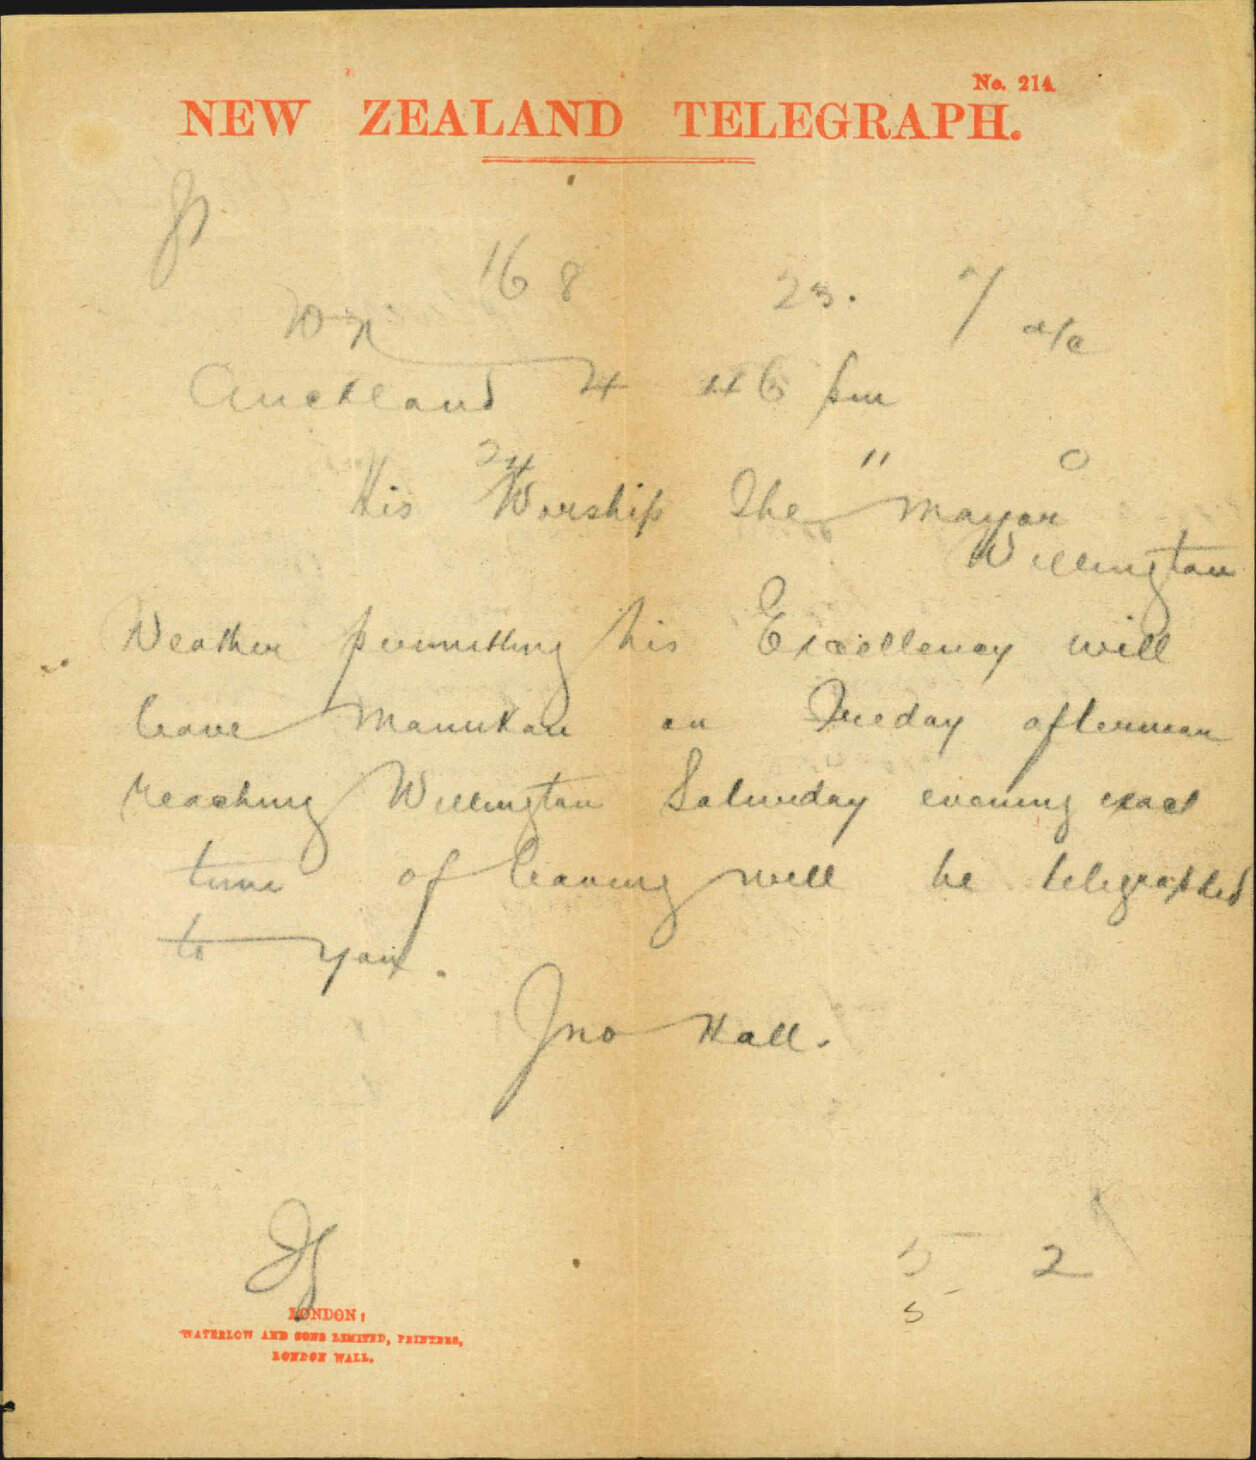 No. 214
NEW ZEALAND TELEGRAPH.
168 23. 7
Auckland 4 46 pm
24 " O
His Worship The Mayor
Wellington
Weather permitting his Excellency will
leave Manukau on Friday afternoon
reaching Wellington Saturday evening exact
time of leaving will be telegraphed
to you.
Jno Hall.
5 2
5
LONDON:
WATERLOW AND SONS LIMITED, PRINTERS,
LONDON WALL.